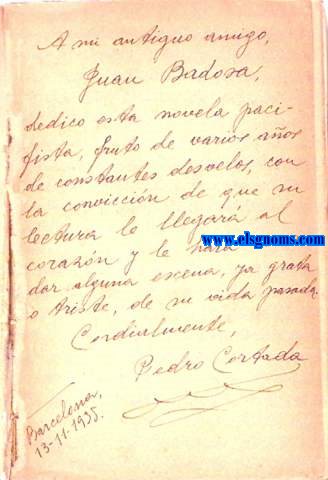 A mi antiguo amigo,
Juan Badosa,
dedico esta novela paci-
fista, fruto de varios años
de constantes desvelos, con
la convicción de que su
lectura le llegará al
www.elsgnoms.com
corazón y le hará
dar alguna escena, ya grata
o triste, de su vida pasada.
Cordialmente,
Pedro Cortada
Barcelona,
13-11-1935.